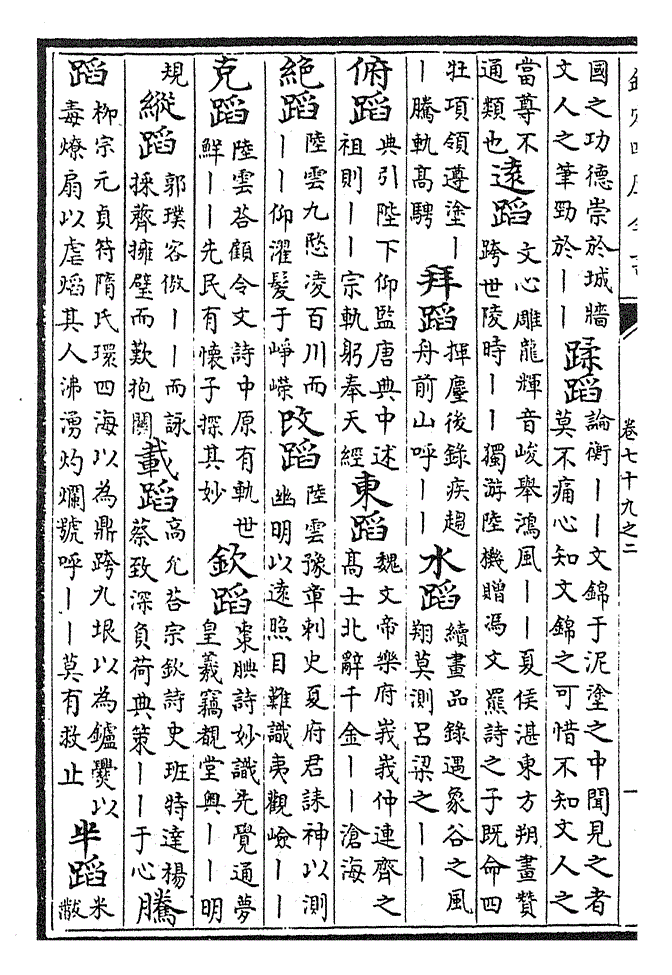 欽定四庫全書
卷七十九之二
一
國之功德崇於城牆
文人之筆勁於丨丨
蹂蹈
論衡丨丨文錦于泥塗之中聞見之者
莫不痛心知文錦之可惜不知文人之
當尊不
通類也
遠蹈
文心雕龍輝音峻舉鴻風丨丨夏侯湛東方朔畫贊
跨世陵時丨丨獨游陸機贈馮文羆詩之子既命四
牡項領遵塗丨
丨騰軌高騁
拜蹈
揮麈後錄疾趨
舟前山呼丨丨
水蹈
續畫品錄遇象谷之風
翔莫測呂梁之丨丨
俯蹈
典引陛下仰監唐典中述
祖則丨丨宗軌躬奉天經
東蹈
魏文帝樂府峩峩仲連齊之
高士北辭千金丨丨滄海
絶蹈
陸雲九愍凌百川而
丨丨仰濯髮于崢嶸
改蹈
陸雲豫章刺史夏府君誄神以測
幽明以遠照目難識夷觀嶮丨丨
克蹈
陸雲荅顧令文詩中原有軌世
鮮丨丨先民有懷子探其妙
欽蹈
棗腆詩妙識先覺通夢
皇羲竊覩堂奥丨丨明
規
縱蹈
郭璞客傲丨丨而詠
採薺擁璧而歎抱關
載蹈
高允荅宗欽詩史班特達楊
蔡致深負荷典策丨丨于心
騰
蹈
柳宗元貞符隋氏環四海以為鼎跨九垠以為鑪爨以
毒燎扇以虐熖其人沸湧灼爛號呼丨丨莫有救止
半蹈
米
黻